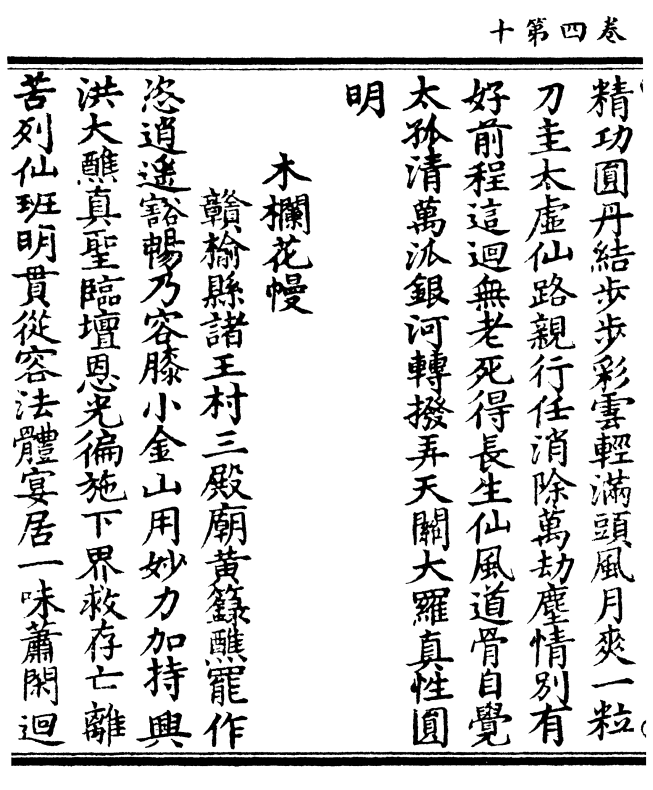 卷四第十
精功圓丹結步步彩雲輕滿頭風月爽一粒
刀圭太虛仙路親行任消除萬劫塵情別有
好前程這迴無老死得長生仙風道骨自覺
太孤清萬派銀河轉撥弄天關大羅真性圓
明
木欄花慢
贛榆縣諸王村三殿廟黃籙醮罷作
恣逍遥豁暢乃容膝小金山用妙力加持興
洪大醮真聖臨壇恩光徧施下界救存亡離
苦列仙班明貫從容法體宴居一味蕭閑迴